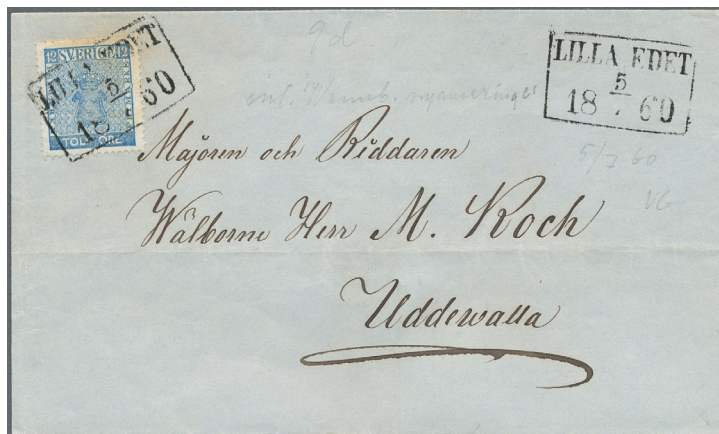 12 SVERIGE 12
TOLF ÖRE
LILLA EDET
5
18 60
LILLA EDET
5
18 7 60
9 d
enl.
5/7 60
VG
Majoren och Riddaren
Wälborne Herr M. Koch
Uddewalla